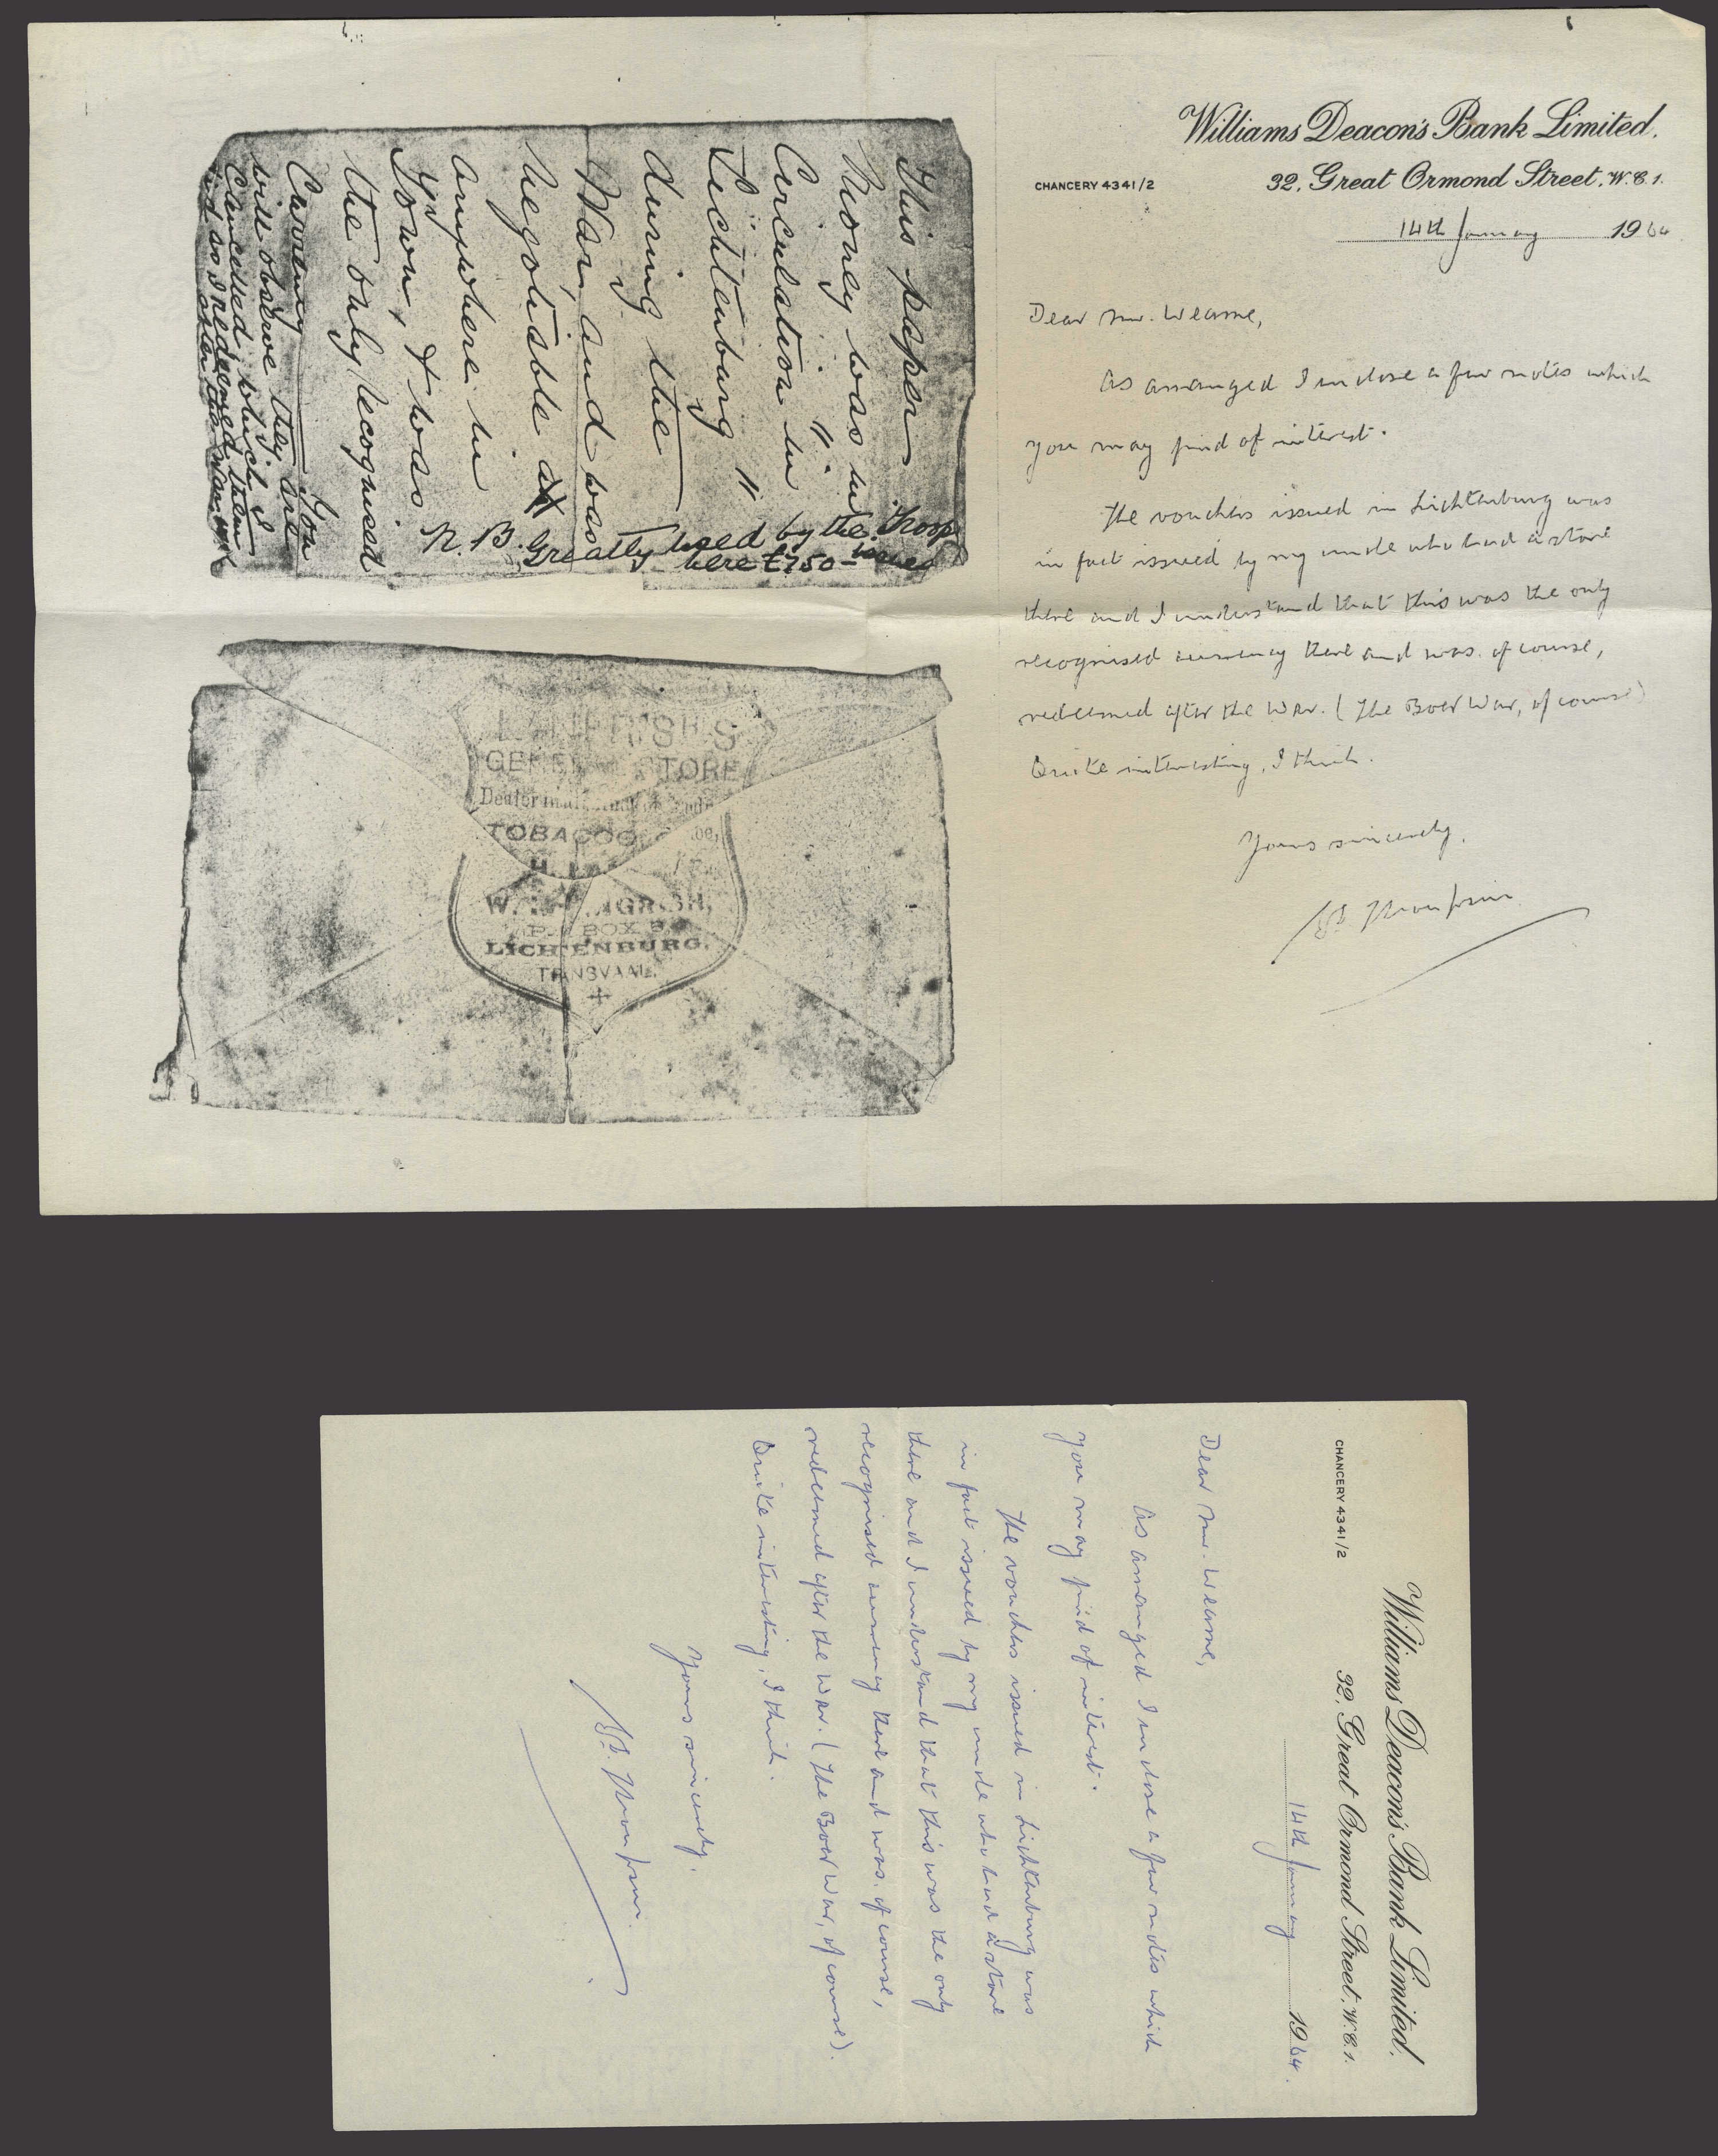 Williams Deacon's Bank Limited.
32, Great Ormond Street, W.C.1.
CHANCERY 4341/2
14th January 1964
Dear Mr. Wearne,
As arranged I enclose a few notes which
you may find of interest.
The vouchers issued in Lichtenburg was
in fact issued by my uncle who had a store
there and I understand that this was the only
recognised currency there and was, of course,
redeemed after the War. (The Boer War, of course)
Quite interesting, I think.
Yours sincerely,
Thompson
This paper
Money was in
Circulation in
Lichtenburg
during the
War, and was
Negotiable at
anywhere in
Town, & was
the only recognised
Currency
You
will observe they are
Cancelled which I
did as I redeemed them
after the War
N.B. Greatly used by the Troops
here £750- issued
GENERAL STORE
Dealer in
TOBACCO
P.O. BOX
LICHTENBURG,
TRANSVAAL.
Williams Deacon's Bank Limited.
32, Great Ormond Street, W.C.1.
CHANCERY 4341/2
14th January 1964.
Dear Mr. Wearne,
As arranged I enclose a few notes which
you may find of interest.
The vouchers issued in Lichtenburg was
in fact issued by my uncle who had a store
there and I understand that this was the only
recognised currency there and was, of course,
redeemed after the War. (The Boer War, of course).
Quite interesting, I think.
Yours sincerely,
Thompson.